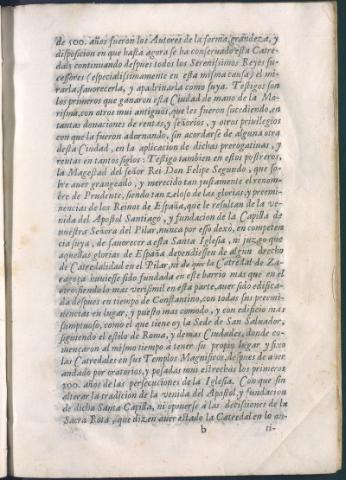 de 500. años fueron los Autores de la forma, grandeza, y
disposicion en que hasta agora se ha conseruado esta Catre-
dal; continuando despues todos los Serenissimos Reyes su-
cessores (especialissimamente en esta misma causa) el mi-
rarla, fauorecerla, y apadrinarla como suya. Testigos son
los primeros que ganaron esta Ciudad de mano de la Mo-
risma, con otros mui antiguos, que les fueron sucediendo, en
tantas donaciones de rentas, y señorios, y otros priuilegios
con que la fueron adornando, sin acordarse de alguna otra
desta Ciudad, en la aplicacion de dichas prerogatinas, y
rentas en tantos siglos: Testigo tambien en estos postreros,
la Magestad del señor Rei Don Felipe Segundo, que so-
bre auer grangeado, y merecido tan justamente el renom-
bre de Prudente, siendo tan zeloso de las glorias, y preemi-
nencias de los Reinos de España, que le resultan de la ve-
nida del Apostol Santiago, y fundacion de la Capilla de
nuestra Señora del Pilar, nunca por esso dexò, en competen-
cia suya, de fauorecer a esta Santa Iglesia, ni juzgo que
aquellas glorias de España dependiessen de algun drecho
de Catredalidad en el Pilar, ni de que la Catredal de Za-
ragoça huuiesse sido fundada en este barrio mas que en el
otro, siendo lo mas verisimil en esta parte, auer sido edifica-
da despues en tiempo de Constantino, con todas sus preemi-
nencias en lugar, y puesto mas comodo, y con edificio mas
sumptuoso, como el que tiene oy la Sede de San Saluador,
siguiendo el estilo de Roma, y demas Ciudades, donde co-
mençaron al mismo tiempo a tener su propio lugar y fixo
las Catredales en sus Templos Magnificos, despues de auer
andado por oratorios, y posadas mui estrechas los primeros
300. años de las persecuciones de la Iglesia. Con que sin
alterar la tradicion de la venida del Apostol, y fundacion
de dicha Santa Capilla, ni oponerse à las decisiones de la
Sacra Rota, que dizen auer estado la Catredal en lo an-
b ti-